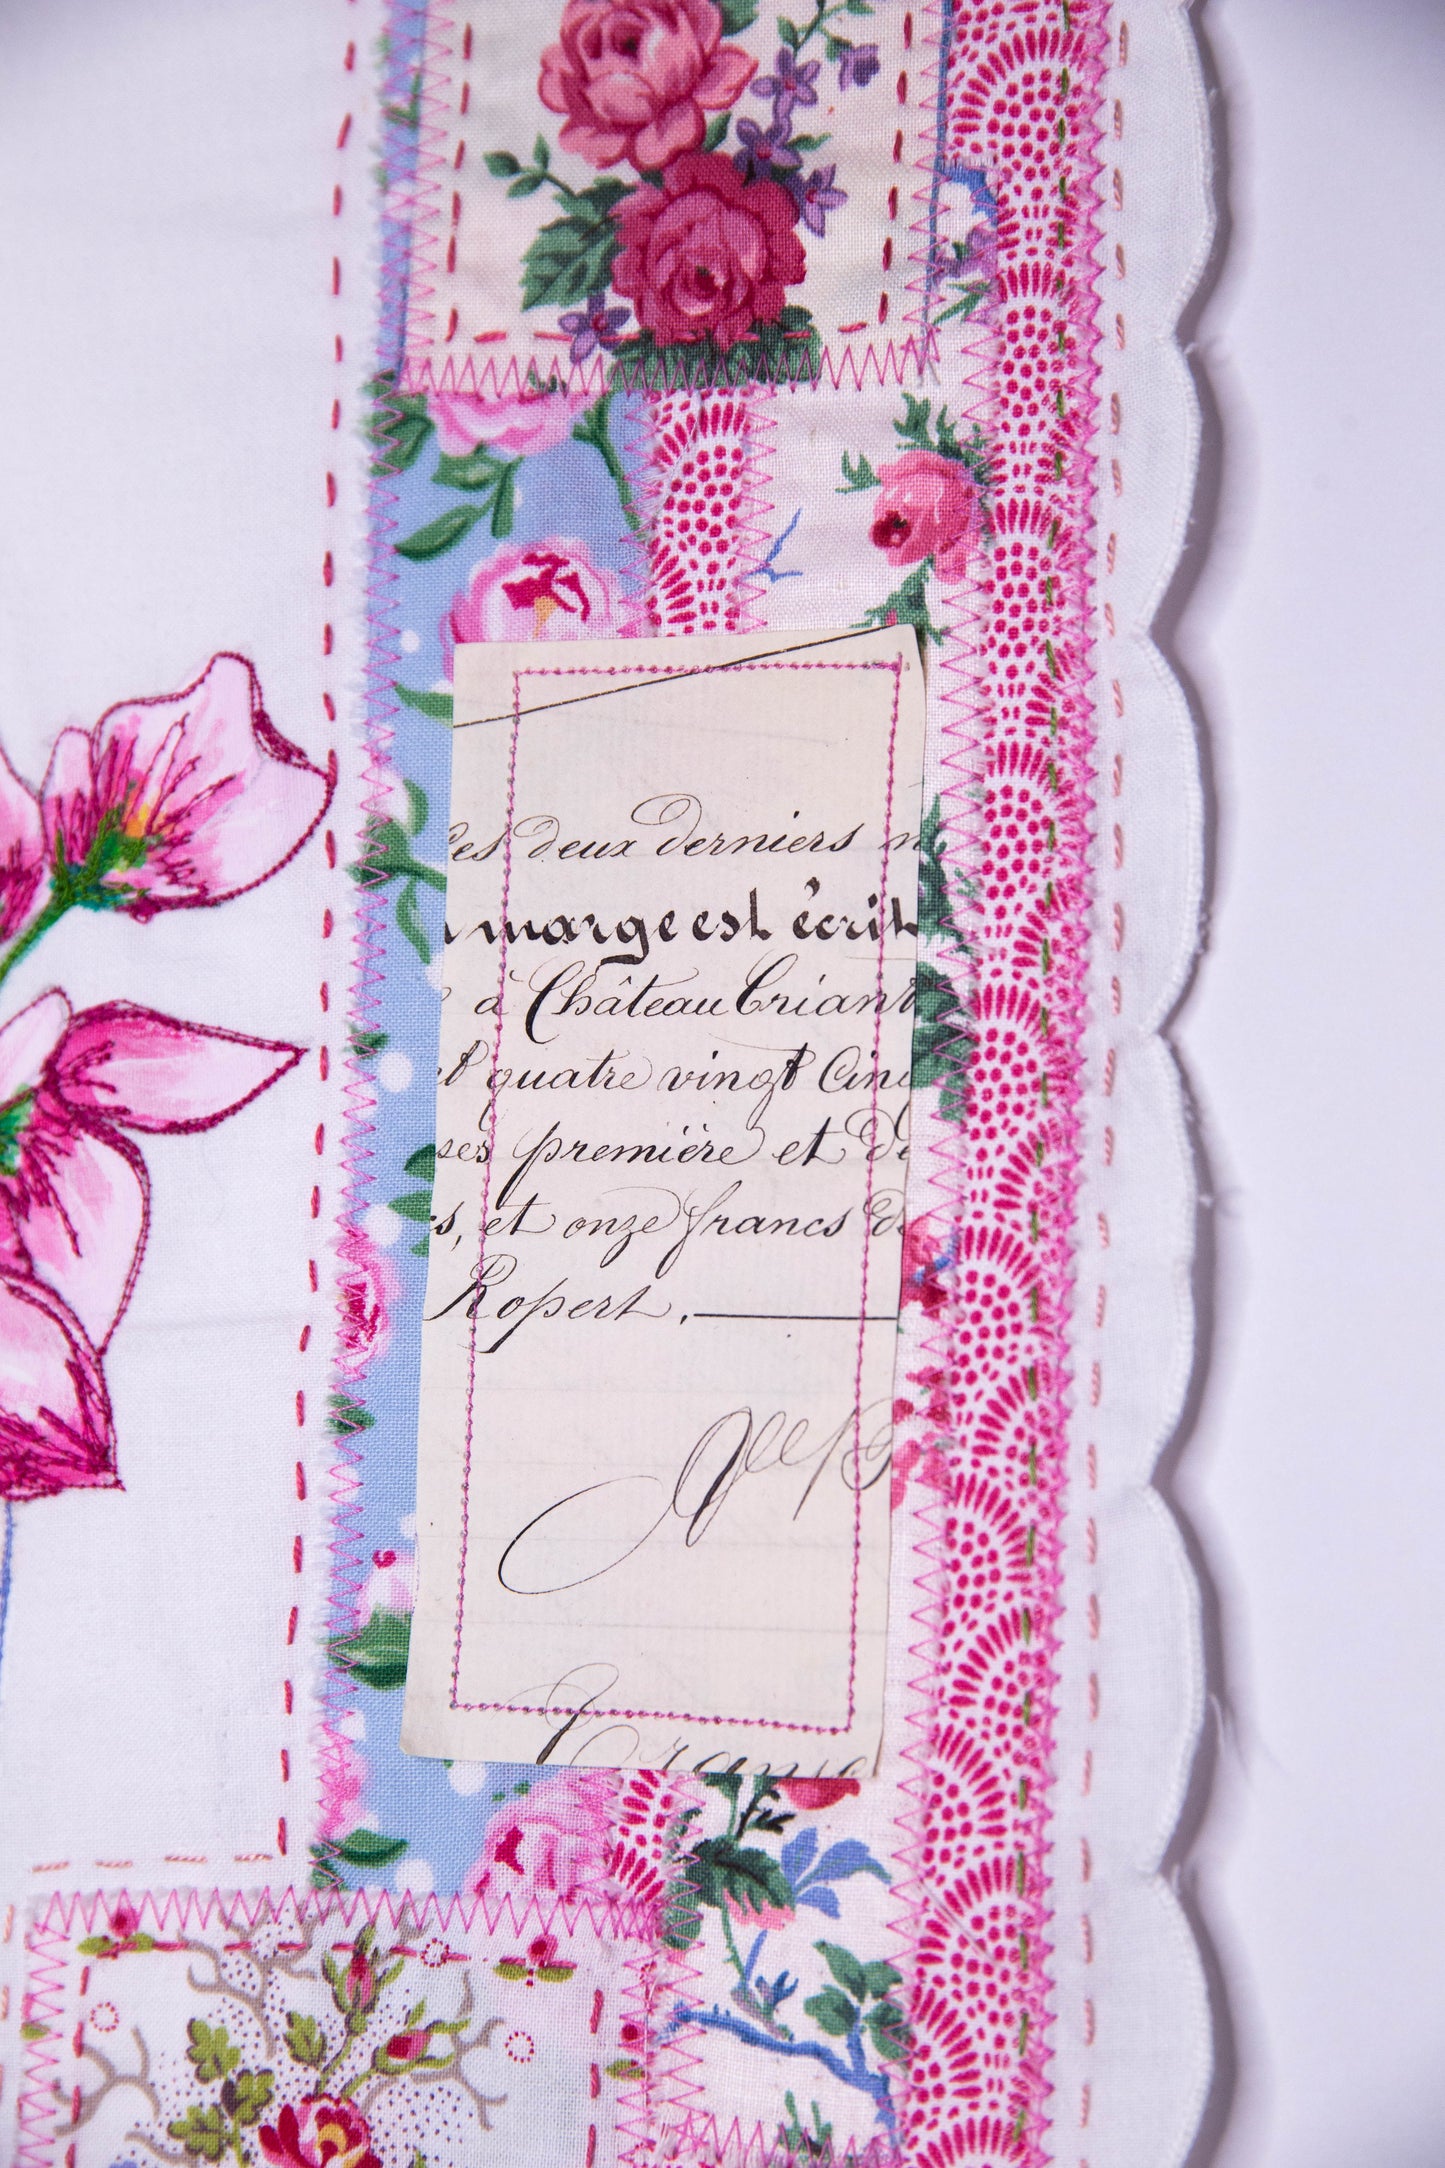 les deux derniers
marge est écrit
à Châteaubriant
quatre vingt cinq
ses première et de
et onze francs de
Ropert.